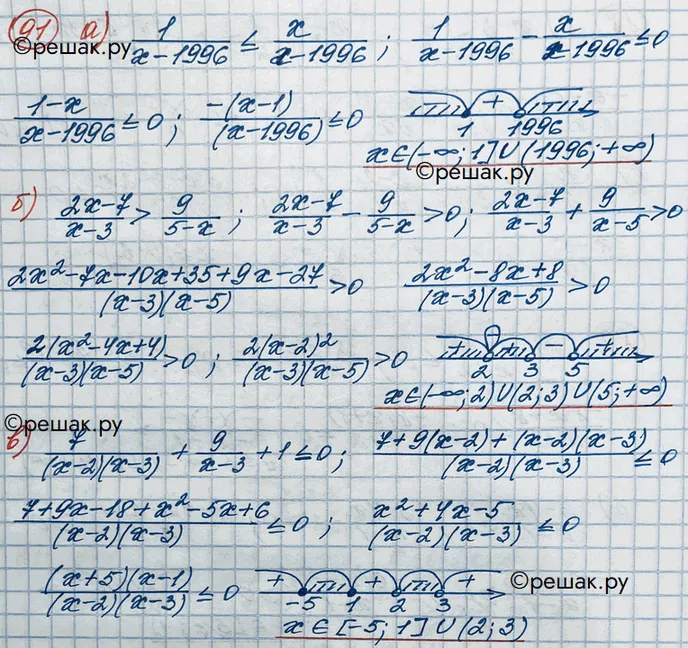 91 а) 1/(x-1996) ≤ x/(x-1996) ; 1/(x-1996) - x/(x-1996) ≤ 0
©решак.ру
(1-x)/(x-1996) ≤ 0 ; -(x-1)/(x-1996) ≤ 0 + 1 1996
x∈(-∞; 1]∪(1996; +∞)
©решак.ру
б) (2x-7)/(x-3) > 9/(5-x) ; (2x-7)/(x-3) - 9/(5-x) > 0 ; (2x-7)/(x-3) + 9/(x-5) > 0
(2x²-7x-10x+35+9x-27)/((x-3)(x-5)) > 0 (2x²-8x+8)/((x-3)(x-5)) > 0
2(x²-4x+4)/((x-3)(x-5)) > 0 ; 2(x-2)²/((x-3)(x-5)) > 0 + + - + 2 3 5
x∈(-∞; 2)∪(2; 3)∪(5; +∞)
©решак.ру
в) 7/((x-2)(x-3)) + 9/(x-3) + 1 ≤ 0 ; (7+9(x-2)+(x-2)(x-3))/((x-2)(x-3)) ≤ 0
(7+9x-18+x²-5x+6)/((x-2)(x-3)) ≤ 0 ; (x²+4x-5)/((x-2)(x-3)) ≤ 0
((x+5)(x-1))/((x-2)(x-3)) ≤ 0 + + + -5 1 2 3 ©решак.ру
x∈[-5; 1]∪(2; 3)